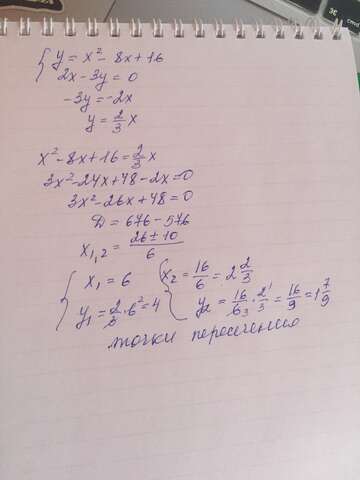 { y = x² - 8x + 16
2x - 3y = 0
-3y = -2x
y = 2/3 x
x² - 8x + 16 = 2/3 x
3x² - 24x + 48 - 2x = 0
3x² - 26x + 48 = 0
D = 676 - 576
x1,2 = (26 ± 10)/6
{ x1 = 6 { x2 = 16/6 = 2 2/3
y1 = 2/3 · 6² = 4 y2 = 16/6 3 · 2 1/3 = 16/9 = 1 7/9
точки пересечения